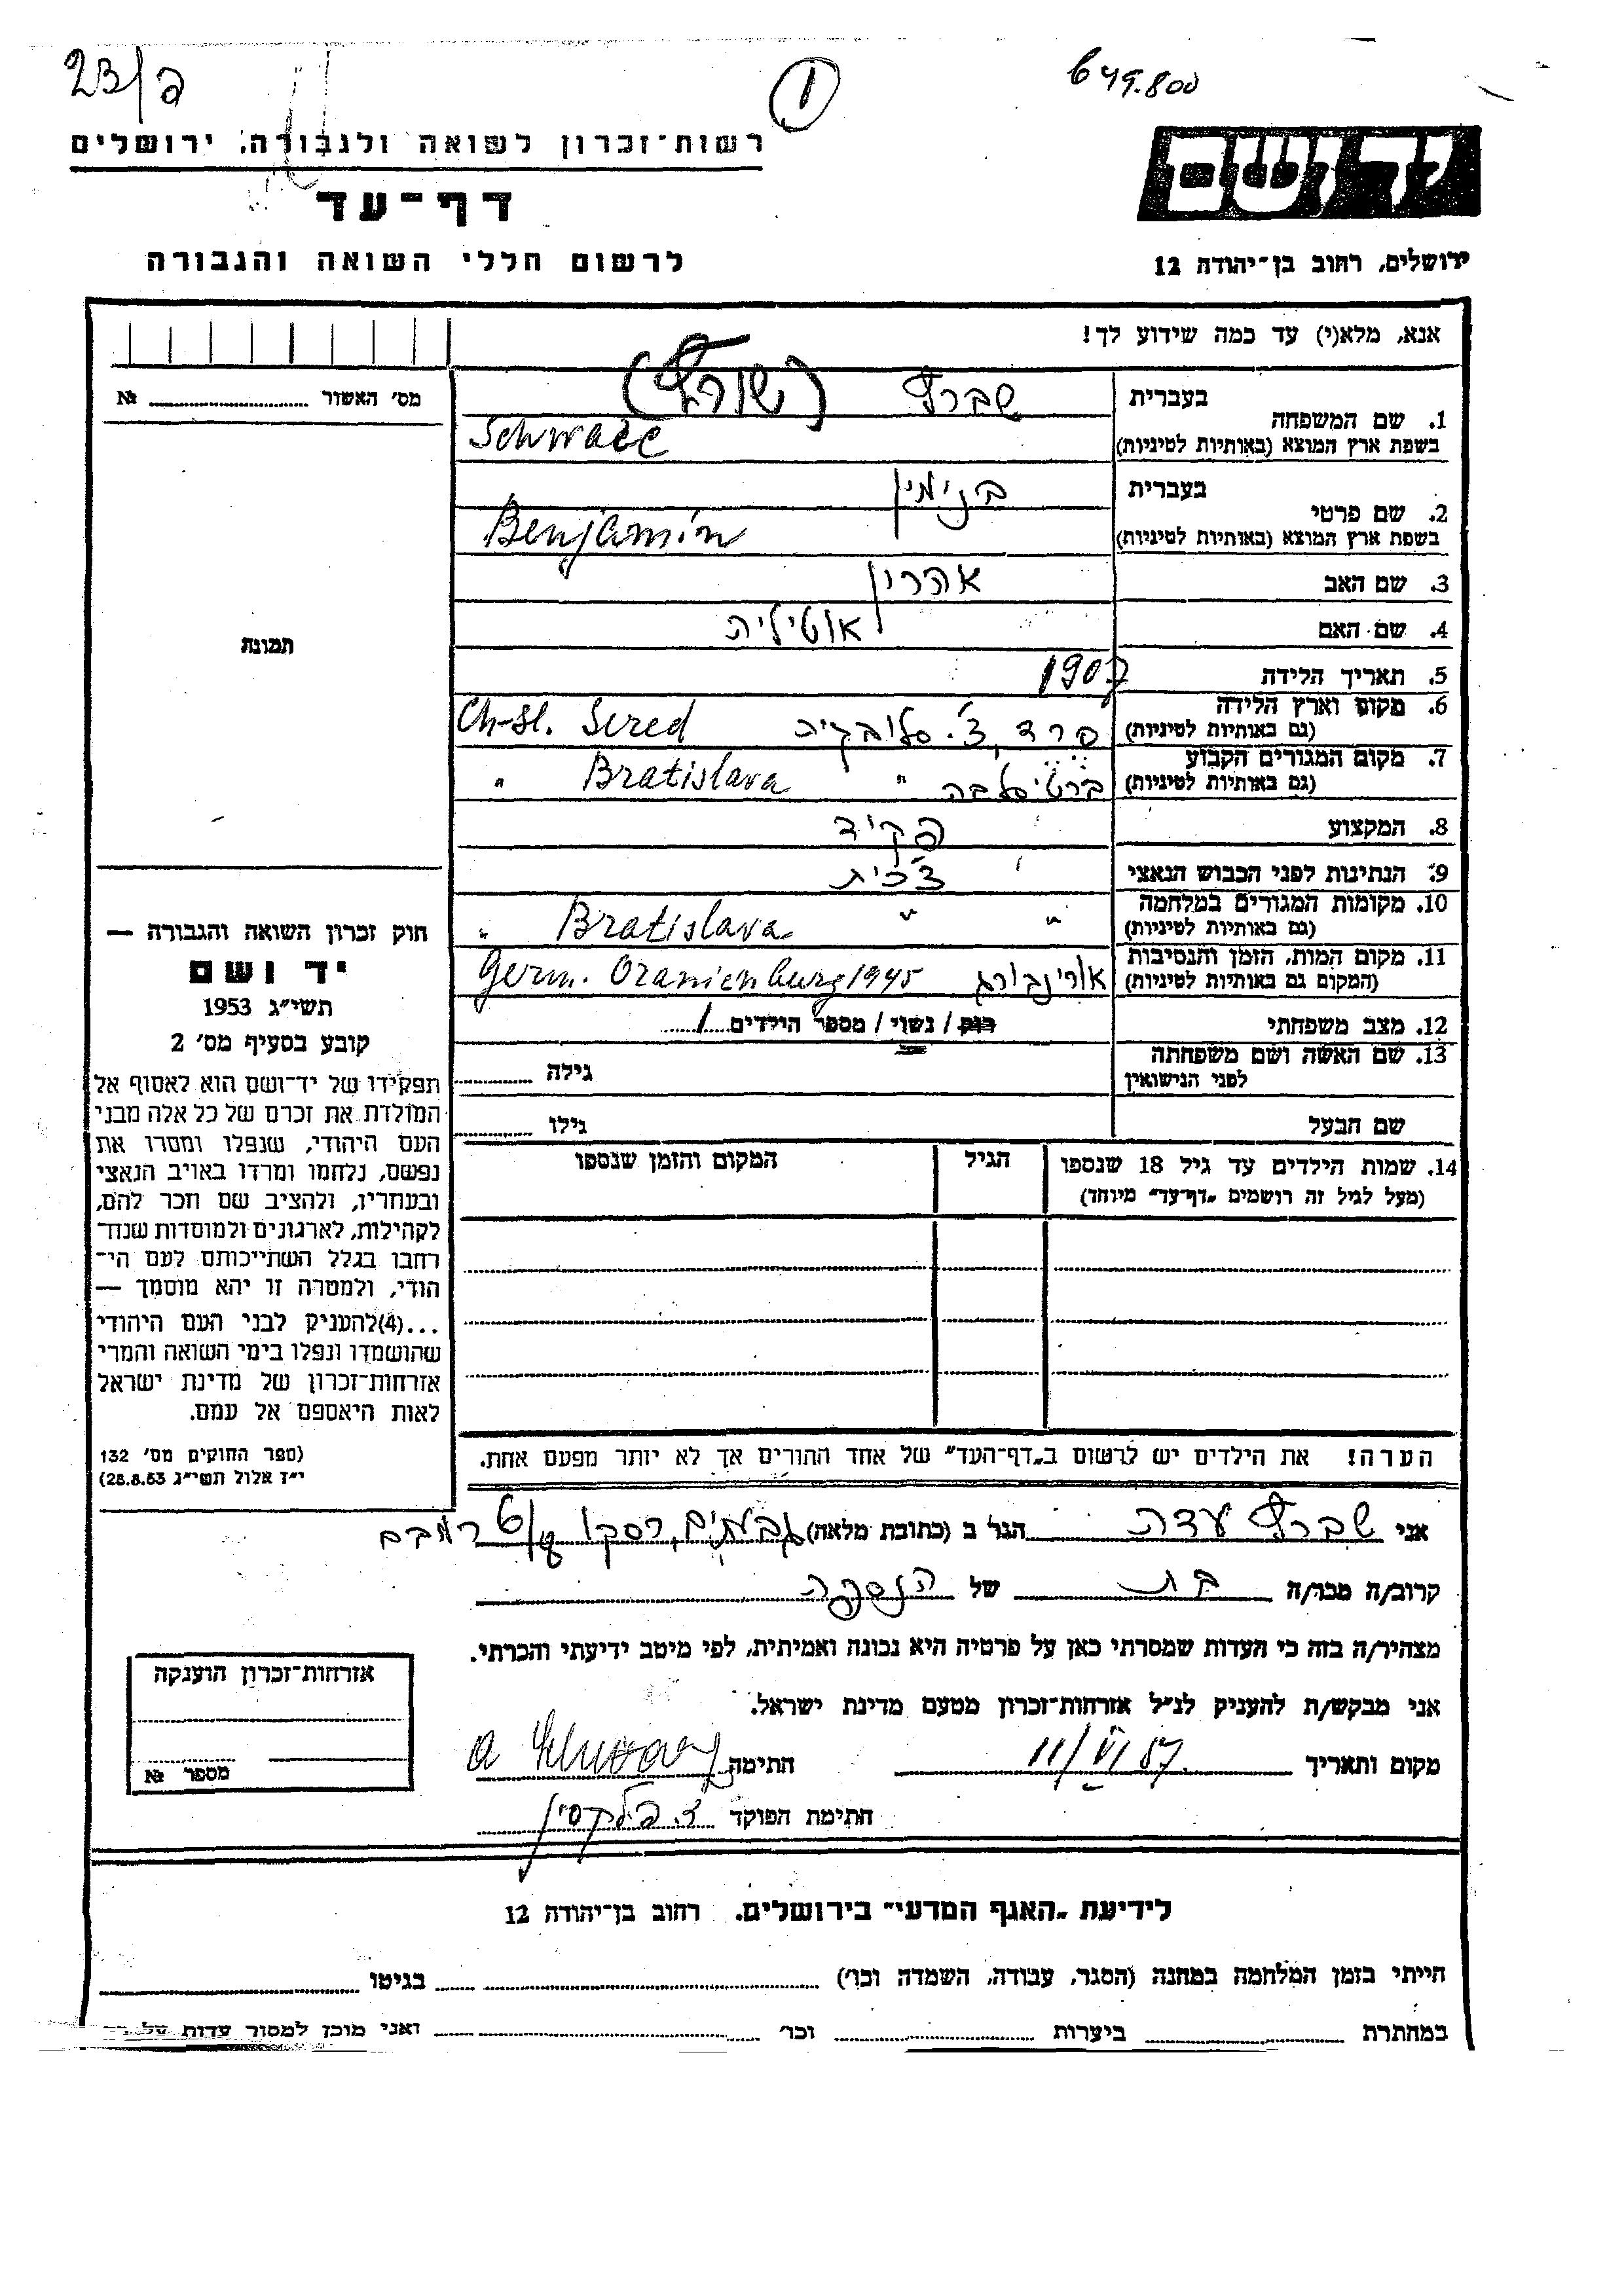 23/ק
1
649.800
רשות־זכרון לשואה ולגבורה, ירושלים
דף־עד
לרשום חללי השואה והגבורה
יד ושם
ירושלים, רחוב בן־יהודה 12
אנא, מלא(י) עד כמה שידוע לך!
מס׳ האשור № 
1. שם המשפחה בעברית שברץ (שורץ)
בשפת ארץ המוצא (באותיות לטיניות) Schwarc
2. שם פרטי בעברית בנימין
בשפת ארץ המוצא (באותיות לטיניות) Benjamin
3. שם האב אהרון
4. שם האם אטיליה
5. תאריך הלידה 1907
6. מקום וארץ הלידה (גם באותיות לטיניות) סרד, צ׳. סלובקיה Ch-sl. Sered
7. מקום המגורים הקבוע (גם באותיות לטיניות) ברטיסלבה " Bratislava "
8. המקצוע פקיד
9. הנתינות לפני הכבוש הנאצי צ׳כית
10. מקומות המגורים במלחמה (גם באותיות לטיניות) " " Bratislava "
11. מקום המות, הזמן והנסיבות (המקום גם באותיות לטיניות) אורינבורג Germ. Oranienburg 1945
12. מצב משפחתי רווק / נשוי / מספר הילדים 1
13. שם האשה ושם משפחתה לפני הנישואין גילה
שם הבעל גילו
14. שמות הילדים עד גיל 18 שנספו הגיל המקום והזמן שנספו
(מעל לגיל זה רושמים „דף־עד" מיוחד)
הערה! את הילדים יש לרשום ב„דף־העד" של אחד ההורים אך לא יותר מפעם אחת.
תמונת
חוק זכרון השואה והגבורה —
יד ושם
תשי״ג 1953
קובע בסעיף מס׳ 2
תפקידו של יד־ושם הוא לאסוף אל
המולדת את זכרם של כל אלה מבני
העם היהודי, שנפלו ומסרו את
נפשם, נלחמו ומרדו באויב הנאצי
ובעוזריו, ולהציב שם וזכר להם,
לקהילות, לארגונים ולמוסדות שנח־
רבו בגלל השתייכותם לעם הי־
הודי, ולמטרה זו יהא מוסמך —
...(4)להעניק לבני העם היהודי
שהושמדו ונפלו בימי השואה והמרי
אזרחות־זכרון של מדינת ישראל
לאות היאספם אל עמם.
(ספר החוקים מס׳ 132
י״ז אלול תשי״ג 28.8.53)
אני שברץ עדה הגר ב (כתובת מלאה) גבעתיים, רסקו
קרוב/ה מכר/ה בת של הנספה
מצהיר/ה בזה כי העדות שמסרתי כאן על פרטיה היא נכונה ואמיתית, לפי מיטב ידיעתי והכרתי.
אני מבקש/ת להעניק לנ״ל אזרחות־זכרון מטעם מדינת ישראל.
מקום ותאריך 11/VI 57. חתימה A Schwarz
חתימת הפוקד
אזרחות־זכרון הוענקה
מספר №
לידיעת „האגף המדעי" בירושלים. רחוב בן־יהודה 12
הייתי בזמן המלחמה במחנה (הסגר, עבודה, השמדה וכו׳) בגיטו
במחתרת ביערות וכו׳ ואני מוכן למסור עדות על